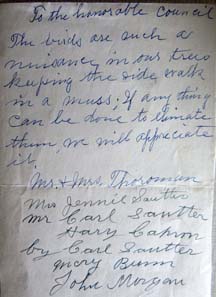 To the honorable Council
The birds are such a
nuisance in our trees
keeping the side walk
in a muss; If any thing
can be done to climate
them, we will appreciate
it.
Mr. & Mrs. Thoroman
Mrs Jennie Sautter
Mr Carl Sautter
Harry Capron
by Carl Sautter
Mary Bunn
John Morgan